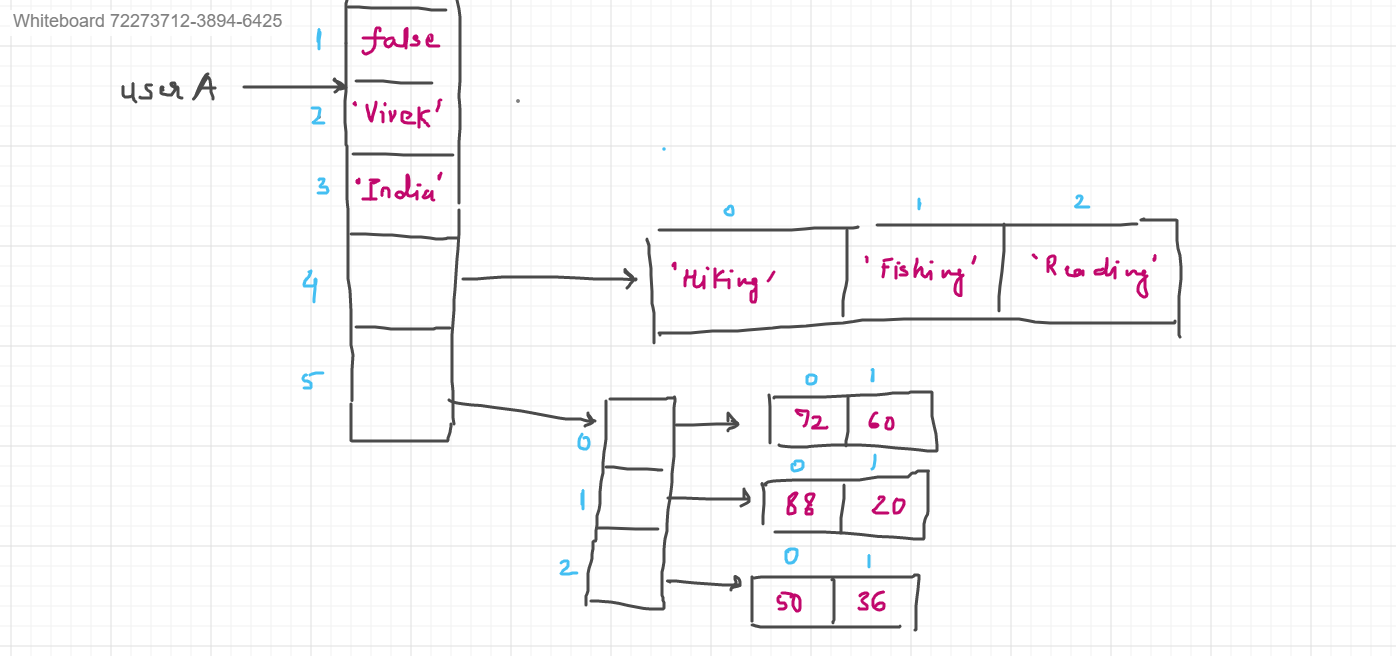 Whiteboard 72273712-3894-6425
1 false
user A
2 'Vivek'
3 'India'
0 1 2
4 'Hiking' 'Fishing' 'Reading'
5
0 1
0 72 60
0 1
1 88 20
0 1
2 50 36